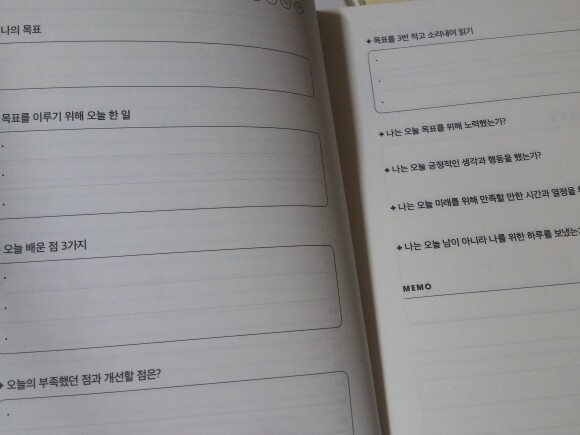 나의 목표
목표를 이루기 위해 오늘 한 일
오늘 배운 점 3가지
오늘의 부족했던 점과 개선할 점은?
목표를 3번 적고 소리내어 읽기
나는 오늘 목표를 위해 노력했는가?
나는 오늘 긍정적인 생각과 행동을 했는가?
나는 오늘 미래를 위해 만족할 만한 시간과 열정을
나는 오늘 남이 아니라 나를 위한 하루를 보냈는가
MEMO